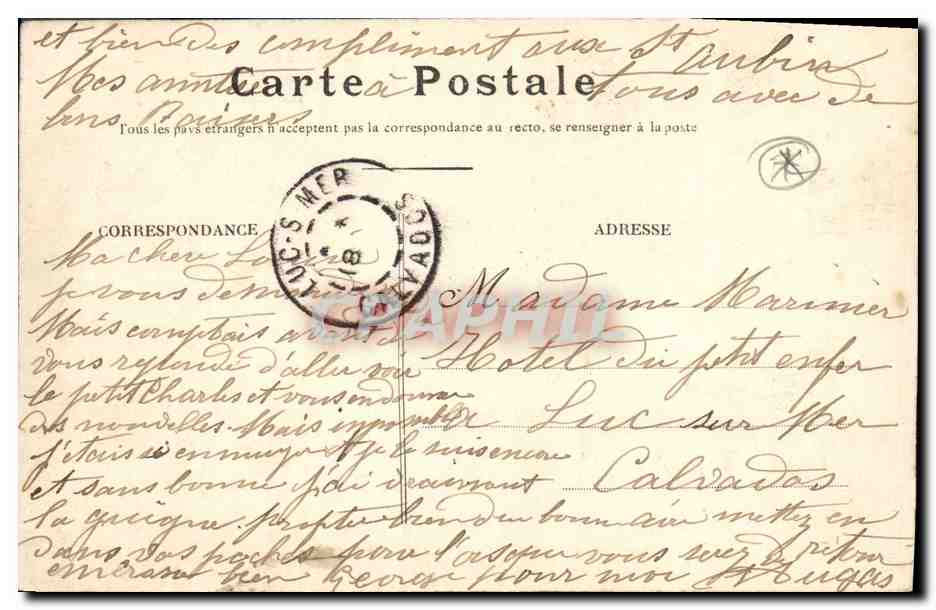 et bien des compliment aux St Aubin
Mes amitié à tous avec de
bons Baisers
Carte Postale
Tous les pays étrangers n'acceptent pas la correspondance au recto, se renseigner à la poste
LUC-S-MER
CALVADOS
18
CPAPHIL
CORRESPONDANCE
Ma chere
je vous demande
Mais comptais avant de
vous repondre d'aller voir
le petit Charles et vous en donner
des nouvelles. Mais impossible
j'étais si en et je le suis encore
et sans bonne j'ai vraiment
la guigne. profitez bien du bon air mettez en
dans vos poches pour lorsque vous serez de retour
embrasse bien George pour moi
ADRESSE
Madame Marinier
Hotel du petit enfer
à Luc sur Mer
Calvados